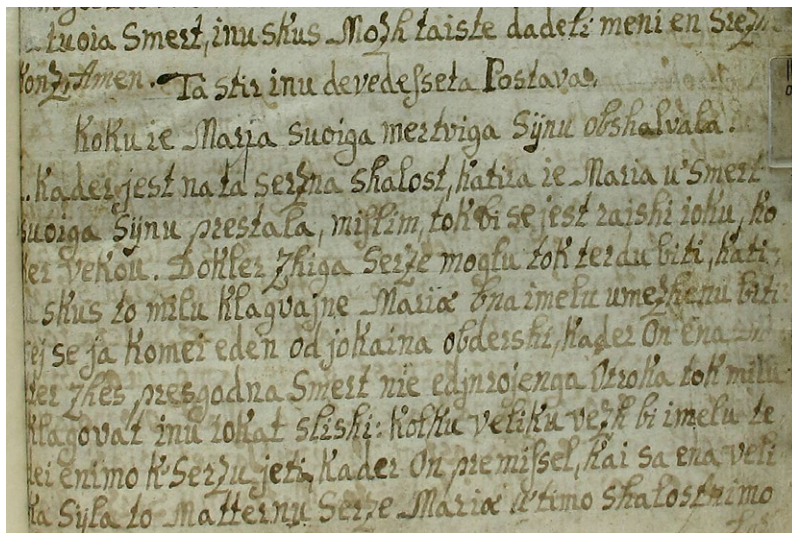 tuoia Smert, inu skus Mozh taiste dadeli meni en Srezh
konz, Amen. Ta stir inu devedesseta Postava.
Koku ie Maria suoiga mertviga Sÿnu obshalvala.
Kader jest na ta serzna shalost, katira ie Maria u'Smert
suoiga Sÿnu prestala, mislim, tok bi se jest raishi ioku, ko
ker vekou. Dokler zhiga Serze moglu tok terdu biti, kati
skus to milu klagvajne Mariæ bna imelu umezhenu biti:
sej se ja komei eden od jokaina obdershi, kader On ena
zhes presgodna Smert nie edjnrojenga Otroka tok milu
klagovat inu iokat slishi: kolku veliku vezh bi imelu te
kei enimo k'Serzu jeti, kader On premissel, kai sa ena veli
ka Syla to Matternu Serze Mariæ u'timo shalostnimo